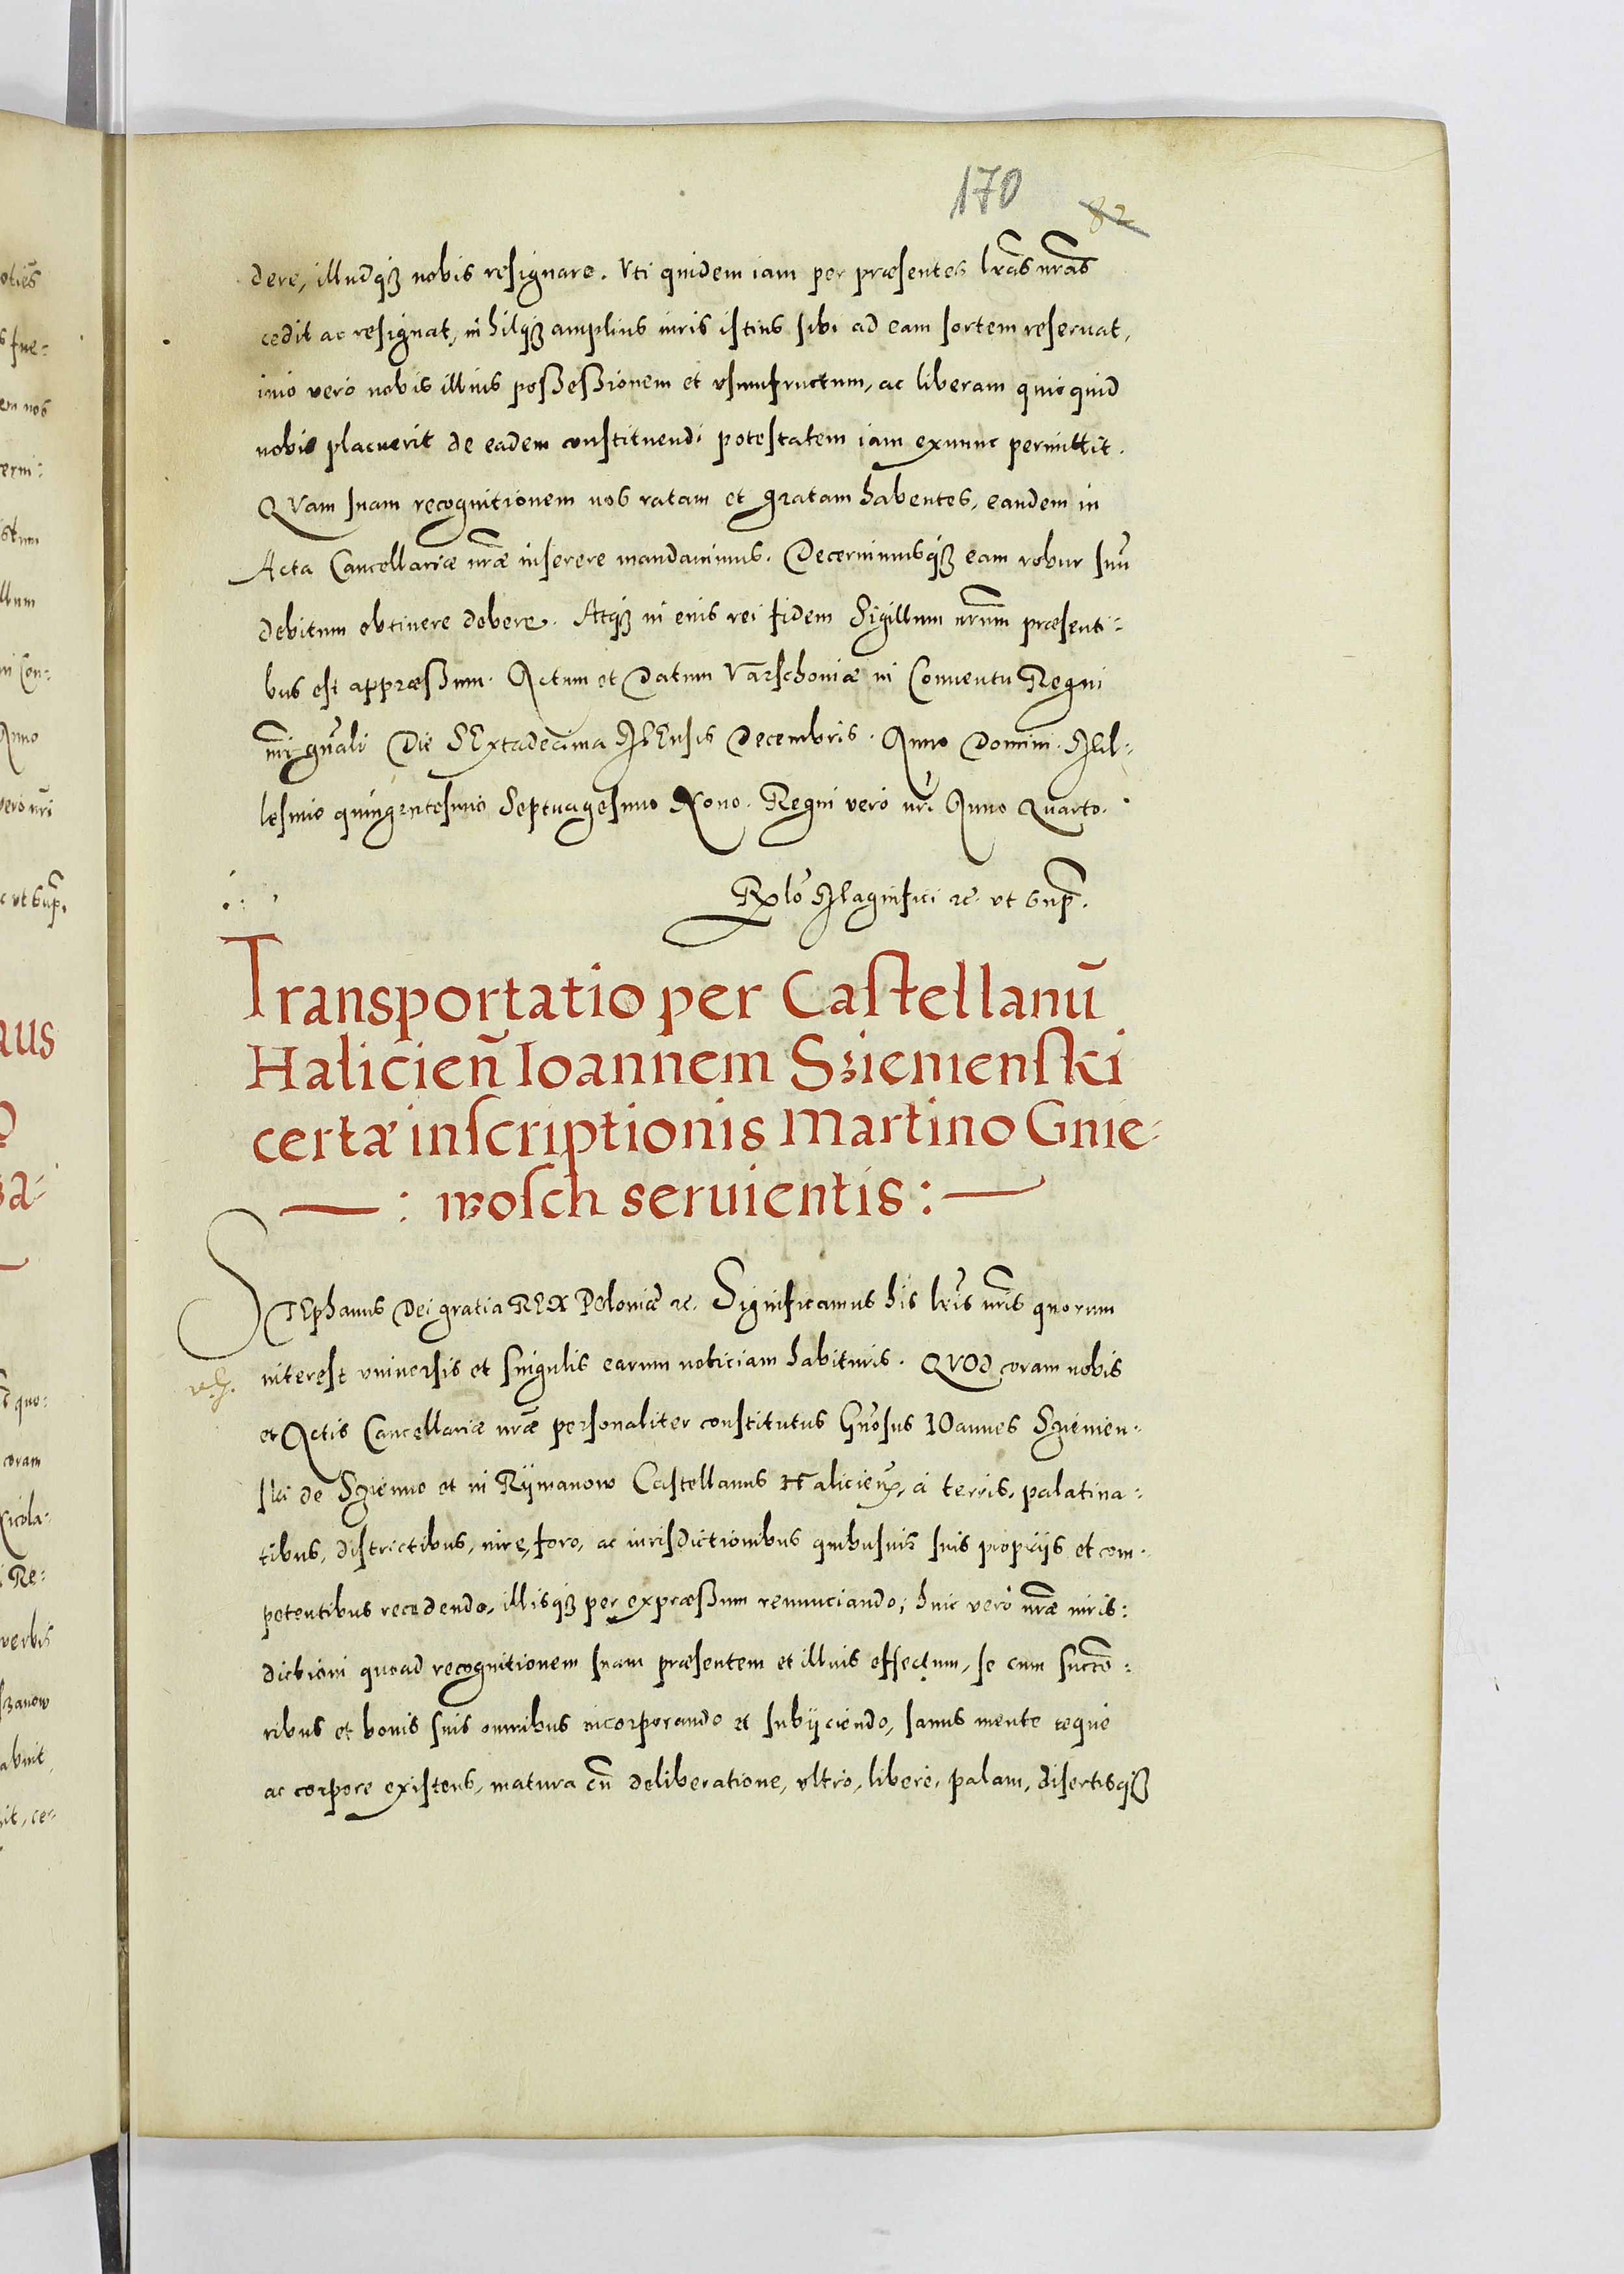 170
82
dere, illudqꝫ nobis resignare. Vti quidem iam per præsentes lr̃as nr̃as
cedit ac resignat, nihilqꝫ amplius iuris istius sibi ad eam sortem reseruat,
imo vero nobis illius possessionem et vsumfructum, ac liberam quicquid
nobis placuerit de eadem constituendi potestatem iam exnunc permittit.
QVam suam recognitionem nos ratam et gratam habentes, eandem in
Acta Cancellariæ nr̃æ inserere mandauimus. Decernimusqꝫ eam robur suũ
debitum obtinere debere. Atqꝫ in eius rei fidem Sigillum nr̃um præsenti=
bus est appræssum. Actum et Datum Varschouiæ in Conuentu Regni
nr̃i gñali Die SExtadecima MEnsis Decembris. Anno Domini. Mil=
lesimo quingentesimo Septuagesimo Nono. Regni vero nr̃i Anno Quarto.
Rẽlo Magnifici ꝛc. vt sup̃.
Transportatio per Castellanũ
Halicieñ Ioannem Sziemienski
certæ inscriptionis Martino Gnie=
: wosch seruientis :
STEphanus Dei gratia REX Poloniæ ꝛc. Significamus his lr̃is nr̃is quorum
interest vniuersis et singulis earum noticiam habituris. QVOd coram nobis
et Actis Cancellariæ nr̃æ personaliter constitutus Gñosus IOannes Sziemien=
ski de Szienno et in Rÿmanow Castellanus Halicieñ, a terris, palatina=
tibus, districtibus, iure, foro, ac iurisdictionibus quibusuis suis propriis et com=
petentibus recedendo, illisqꝫ per expræssum renunciando, huic vero nr̃æ iuris=
dictioni quoad recognitionem suam præsentem et illius effectum, se cum succõ=
ribus et bonis suis omnibus incorporando et subijciendo, sanus mente æque
ac corpore existens, matura cũ deliberatione, vltro, libere, palam, disertisqꝫ